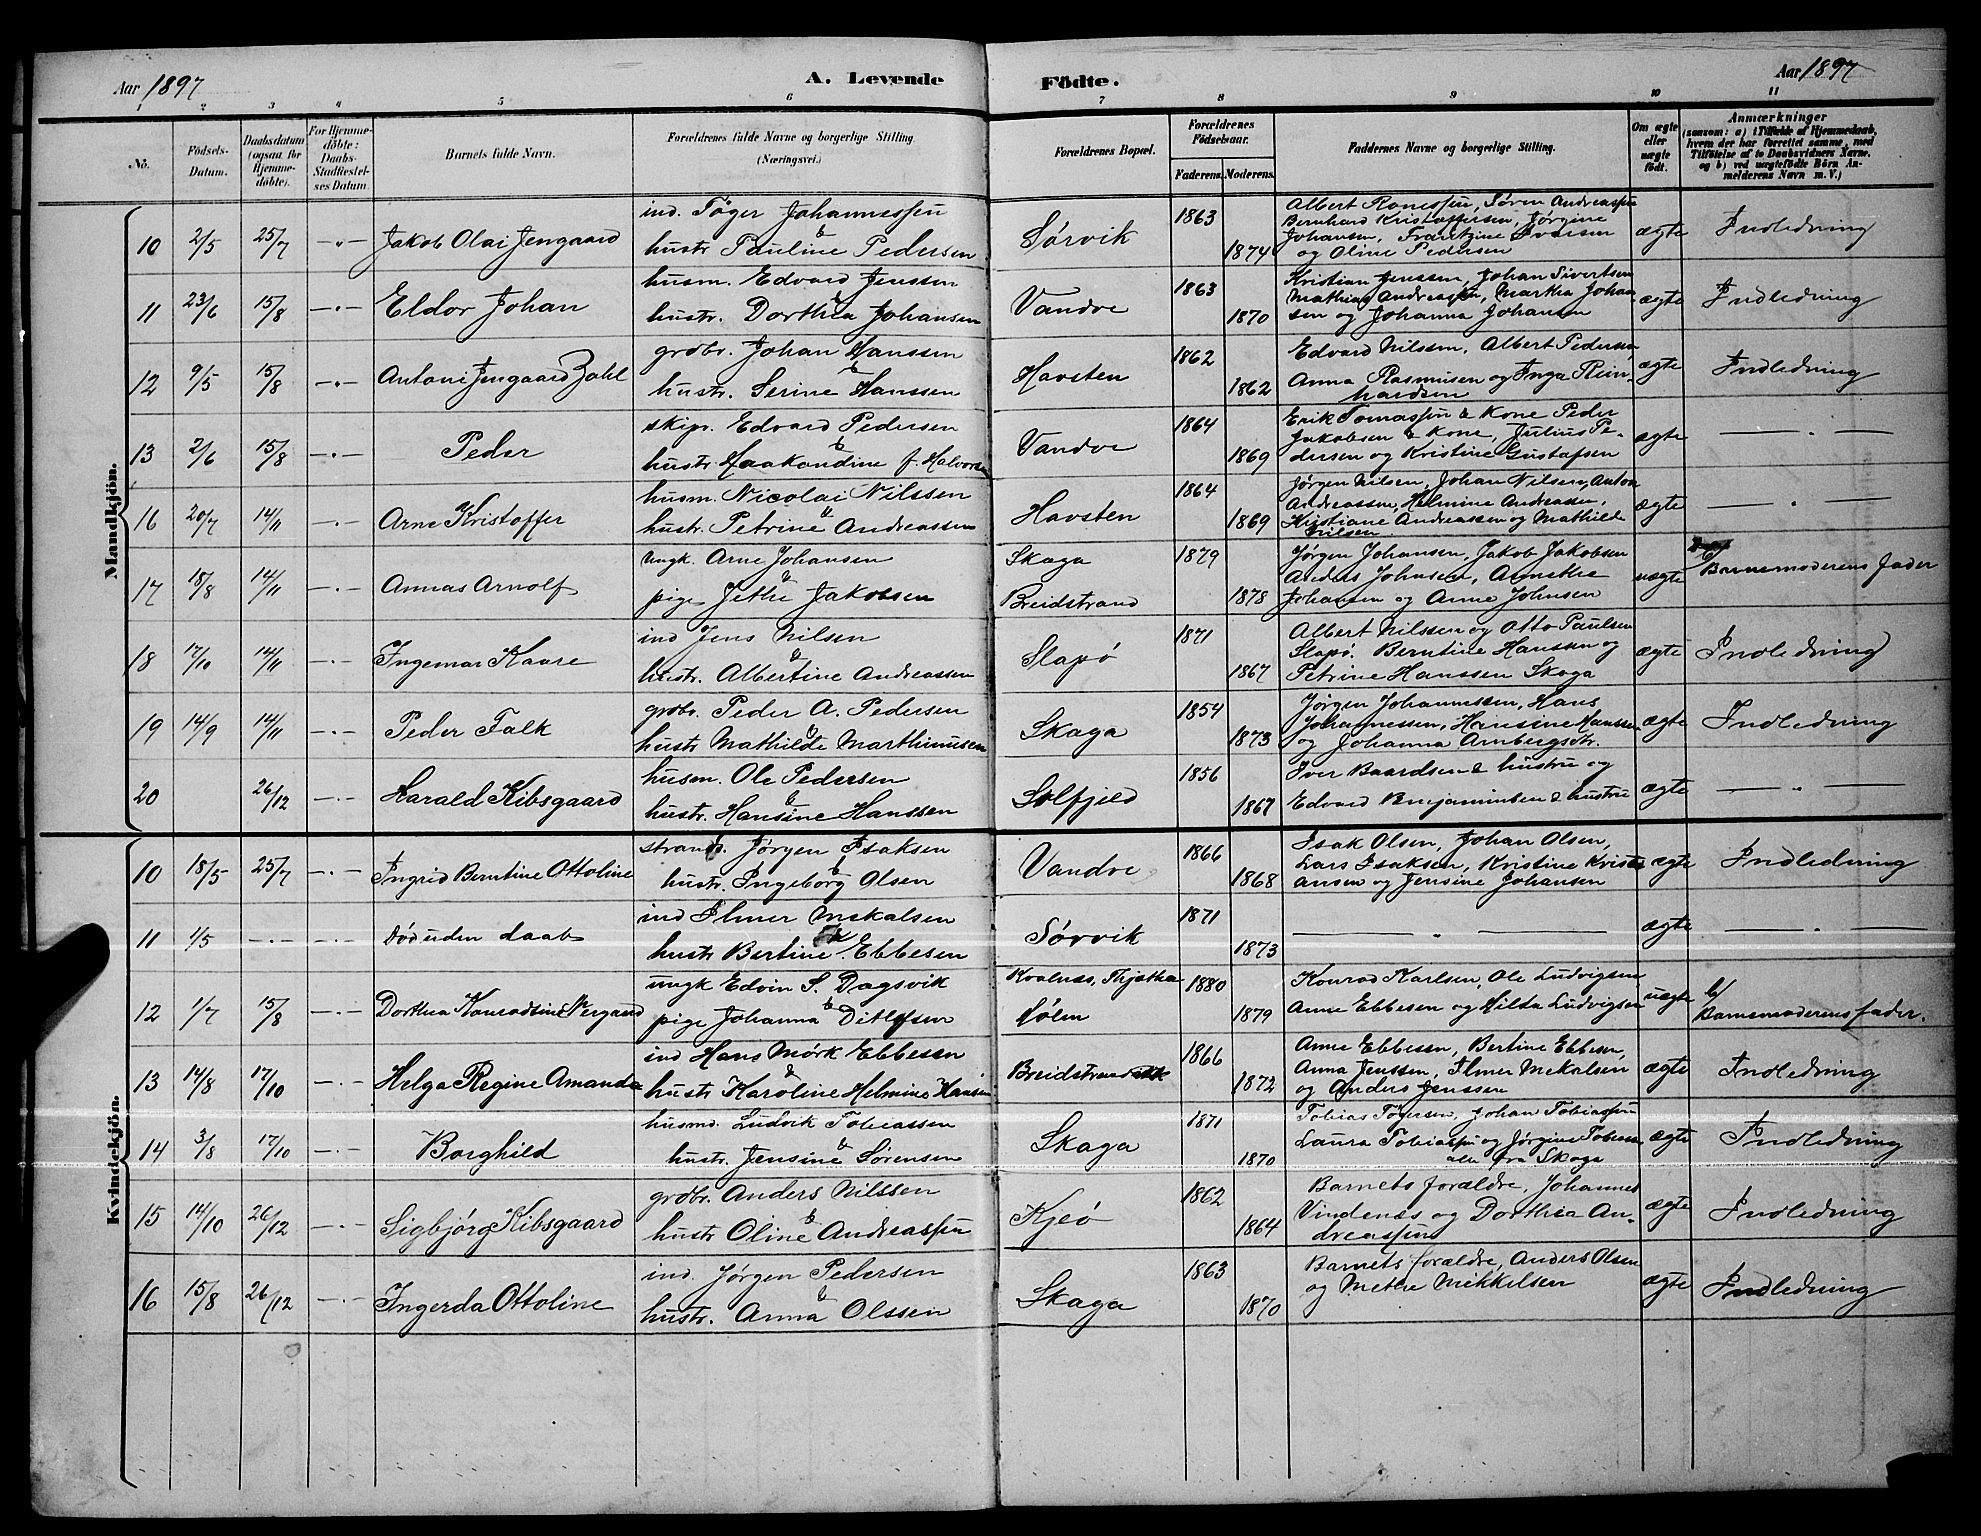 Aar 1897 A. Levende Födte. Aar 1897
1 2 3 4 5 6 7 8 9 10 11
No. Födsels-Datum. Daabsdatum (ogsaa for Hjemme-döbte). For Hjemme-döbte: Daabs-Stadfestel-ses Datum. Barnets fulde Navn. Forældrenes fulde Navne og borgerlige Stilling (Næringsvei.) Forældrenes Bopæl. Forældrenes Födselsaar. Faderens. Moderens. Faddernes Navne og borgerlige Stilling. Om ægte eller uægte födt. Anmærkninger (saasom: a) i Tilfælde af Hjemmedaab, hvem der har forrettet samme, med Tilföielse af to Daabsvidners Navne, og b) ved uægtefödte Börn An-melderens Navn m. V.)
Mandkjön.
10 2/5 25/7 -"- Jakob Olai Jengaard ind. Töger Johannessen & hustr Pauline Pedersen Sörvik 1863 1874 Albert Ronessen, Sören Andreassen Bernhard Kristoffersen, Jörgine Johansen, Frantzine Iversen og Oline Pedersen ægte Indledning
11 23/6 15/8 -"- Eldor Johan husm. Edvard Jenssen & hustr. Dorthea Johansen Vandve 1863 1870 Kristian Jenssen, Johan Sivertsen Mathias Andreassen, Martha Johan sen og Johanna Johansen ægte Indledning
12 9/5 15/8 -"- Antoni Jengaard Zahl grdbr. Johan Hanssen & hustr. Serine Hanssen Havsten 1862 1862 Edvard Nilssen, Albert Pedersen, Anna Rasmusen og Inga Rein-hardsen ægte Indledning
13 2/6 15/8 -"- Peder skipr. Edvard Pedersen & hustr. Haakondine f. Halvorsen Vandve 1864 1869 Erik Tomassen & Kone Peder Jakobsen & Kone, Julius Pe-dersen og Kristine Gustafsen ægte - " -
16 20/7 14/11 -"- Arne Kristoffer husm. Nicolai Nilssen & hustr. Petrine Andreassen Havsten 1864 1869 Jörgen Nilsen, Johan Nilsen, Anton Andreassen, Helmine Andreassen, Kristiane Andreassen og Mathilde Nilsen ægte - " -
17 18/8 14/11 -"- Annas Arnolf Ungk. Arne Johansen & pige Jethe Jakobsen Skaga Breidstrand 1879 1878 Jörgen Johansen, Jakob Jakobsen Anders Johnsen, Annethe Johansen og Anne Johnsen uægte b/ Barnemoderens fader
18 17/10 14/11 -"- Ingemar Kaare ind Jens Nilsen & hustr. Albertine Andreassen Slapö 1871 1867 Albert Nilssen og Otto Paulsen Slapö. Berntine Hanssen og Petrine Hanssen Skaga ægte Indledning
19 14/9 14/11 -"- Peder Falk grdbr. Peder A. Pedersen & hustr Mathilde Marthinusen Skaga 1854 1873 Jörgen Johannessen, Hans Johannessen, Hansine Hanssen og Johanna Arnbergsdtr. ægte Indledning
20 26/12 -"- Harald Kibsgaard husm. Ole Pedersen & hustr. Hansine Hanssen Solfjeld 1856 1867 Iver Baardsen & hustru og Edvard Benjaminsen & hustru ægte - " -
Kvindekjön.
10 18/5 25/7 -"- Ingrid Berntine Ottoline strands. Jörgen Isaksen & hustr. Ingeborg Olsen Vandve 1866 1868 Isak Olsen, Johan Olsen, Lars Isaksen, Kristine Kristi ansen og Jensine Johansen ægte Indledning
11 1/5 -"- -"- Död uden daab ind Ilmer Mekalsen & hustr Bertine Ebbesen Sörvik 1871 1873 - " - ægte - " -
12 1/7 15/8 -"- Dorthea Konradine Nergaard ungk Edvin S. Dagsvik & pige Johanna Ditlefsen Kvalnæs, Thjøtta Hölen 1880 1879 Konrad Karlsen, Ole Ludvigsen Anne Ebbesen og Hilda Ludvigsen uægte b/ Barnemoderens fader.
13 14/8 17/10 -"- Helga Regine Amanda ind Hans Mörk Ebbesen & hustr Karoline Helmine Hansen Breidstrand 1866 1872 Anne Ebbesen, Bertine Ebbesen, Anna Jenssen, Ilmer Mekalsen og Anders Jenssen ægte Indledning
14 3/8 17/10 -"- Borghild husmd. Ludvik Tobiassen & hustr. Jensine Sörensen Skaga 1871 1870 Tobias Tögersen, Johan Tobiassen Laura Tobiassen og Jörgine Tobiassen alle fra Skaga ægte Indledning
15 14/10 26/12 -"- Sigbjörg Kibsgaard grdbr. Anders Nilssen & hustr Oline Andreassen Kjeö 1862 1864 Barnets forældre, Johannes Vindenes og Dorthea An-dreassen ægte Indledning
16 15/8 26/12 -"- Ingerda Ottoline ind. Jörgen Pedersen & hustr. Anna Olssen Skaga 1863 1870 Barnets forældre, Anders Olsen og Methe Mikkelsen ægte Indledning